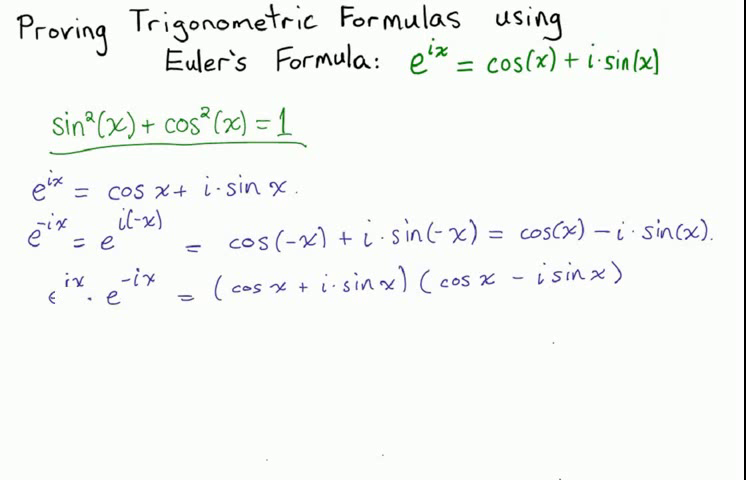 Proving Trigonometric Formulas using
Euler's Formula: e^{ix} = cos(x) + i·sin(x)
sin²(x) + cos²(x) = 1
e^{ix} = cos x + i·sin x.
e^{-ix} = e^{i(-x)} = cos(-x) + i·sin(-x) = cos(x) - i·sin(x).
e^{ix} · e^{-ix} = (cos x + i·sin x)(cos x - i sin x)